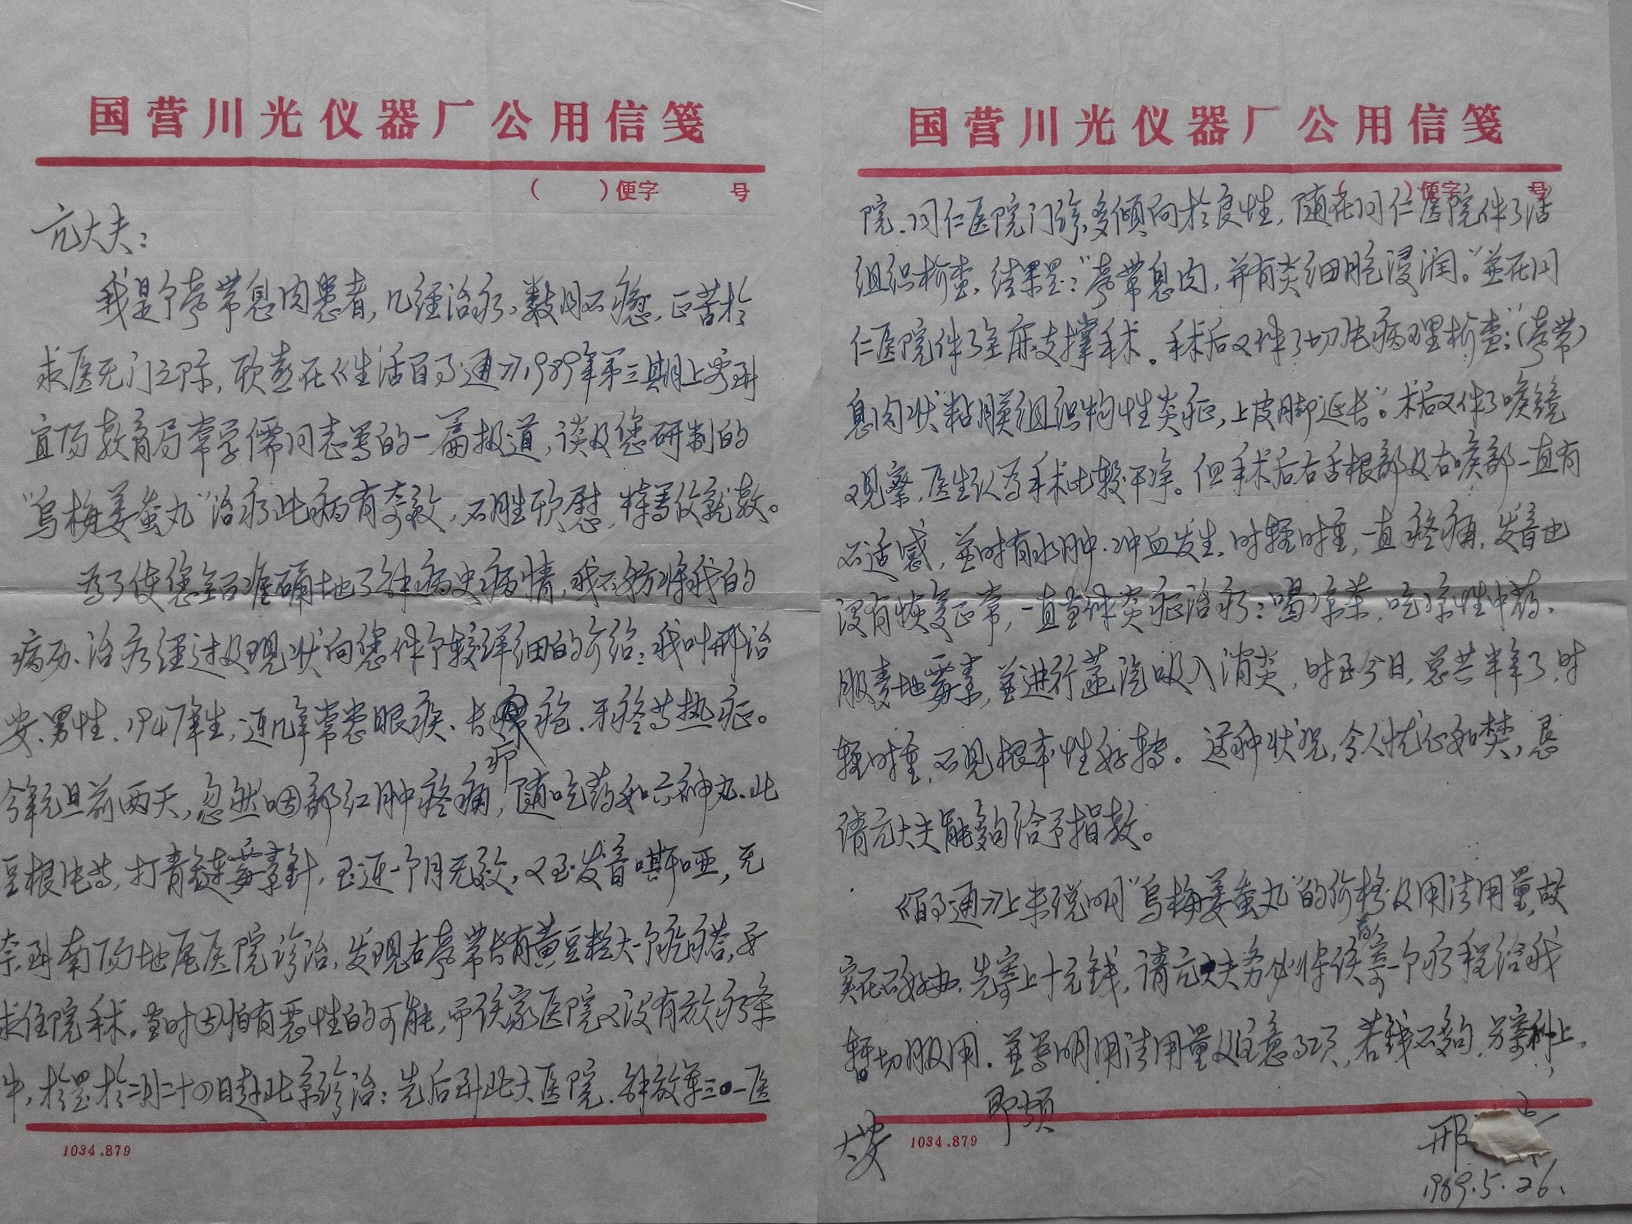 国营川光仪器厂公用信笺
( )便字 号
亢大夫：
我是个声带息肉患者，几经治疗，数月不愈，正苦于
求医无门之际，欣喜在《生活百事通》1989年第三期上看到
宜阳教育局常学儒同志写的一篇报道，谈及您研制的
“乌梅姜蚕丸”治疗此病有奇效，不胜欣慰，特写信就教。
为了使您全面准确地了解病史病情，我不妨将我的
病历、治疗经过及现状向您作个较详细的介绍：我叫邢治
安、男性、1947年生，近几年常患眼疾、长疖疮、牙疼等热症。
今年元旦前两天，忽然咽部红肿疼痛，即随吃药如六神丸、北
豆根片等，打青链霉素针，至近一个月无效，又至发音嘶哑，无
奈到南阳地区医院诊治，发现右声带长有黄豆粒大一个疙瘩，要
求住院手术。当时因怕有恶性的可能，而该家医院又没有放疗条
件，于是于二月二十四日赴北京诊治：先后到北大医院、解放军三〇一医
1034.879
国营川光仪器厂公用信笺
( )便字 号
院、同仁医院门诊，多倾向于良性，随在同仁医院作了活
组织检查，结果是：“声带息肉，并有炎细胞浸润。”并在同
仁医院作了全麻支撑手术。手术后又作了切片病理检查：“(声带)
息肉状粘膜组织构性炎症，上皮脚延长”。术后又作了喉镜
观察，医生认为手术比较干净。但手术后右舌根部及右喉部一直有
不适感，并时有水肿、冲血发生，时轻时重，一直疼痛，发音也
没有恢复正常，一直当作炎症治疗：喝凉茶，吃凉性中药、
服麦地霉素，并进行蒸汽吸入消炎，时至今日，总共半年了，时
轻时重，不见根本性好转。这种状况，令人忧心如焚，恳
请亢大夫能够给予指教。
《百事通》上未说明“乌梅姜蚕丸”的价格及用法用量，故
实在不好办，先寄上十元钱，请亢大夫务必将该药寄一个疗程给我
暂切服用，并写明用法用量及注意事项，若钱不够，另寄补上。
即颂
大安
邢
1989.5.26.
1034.879